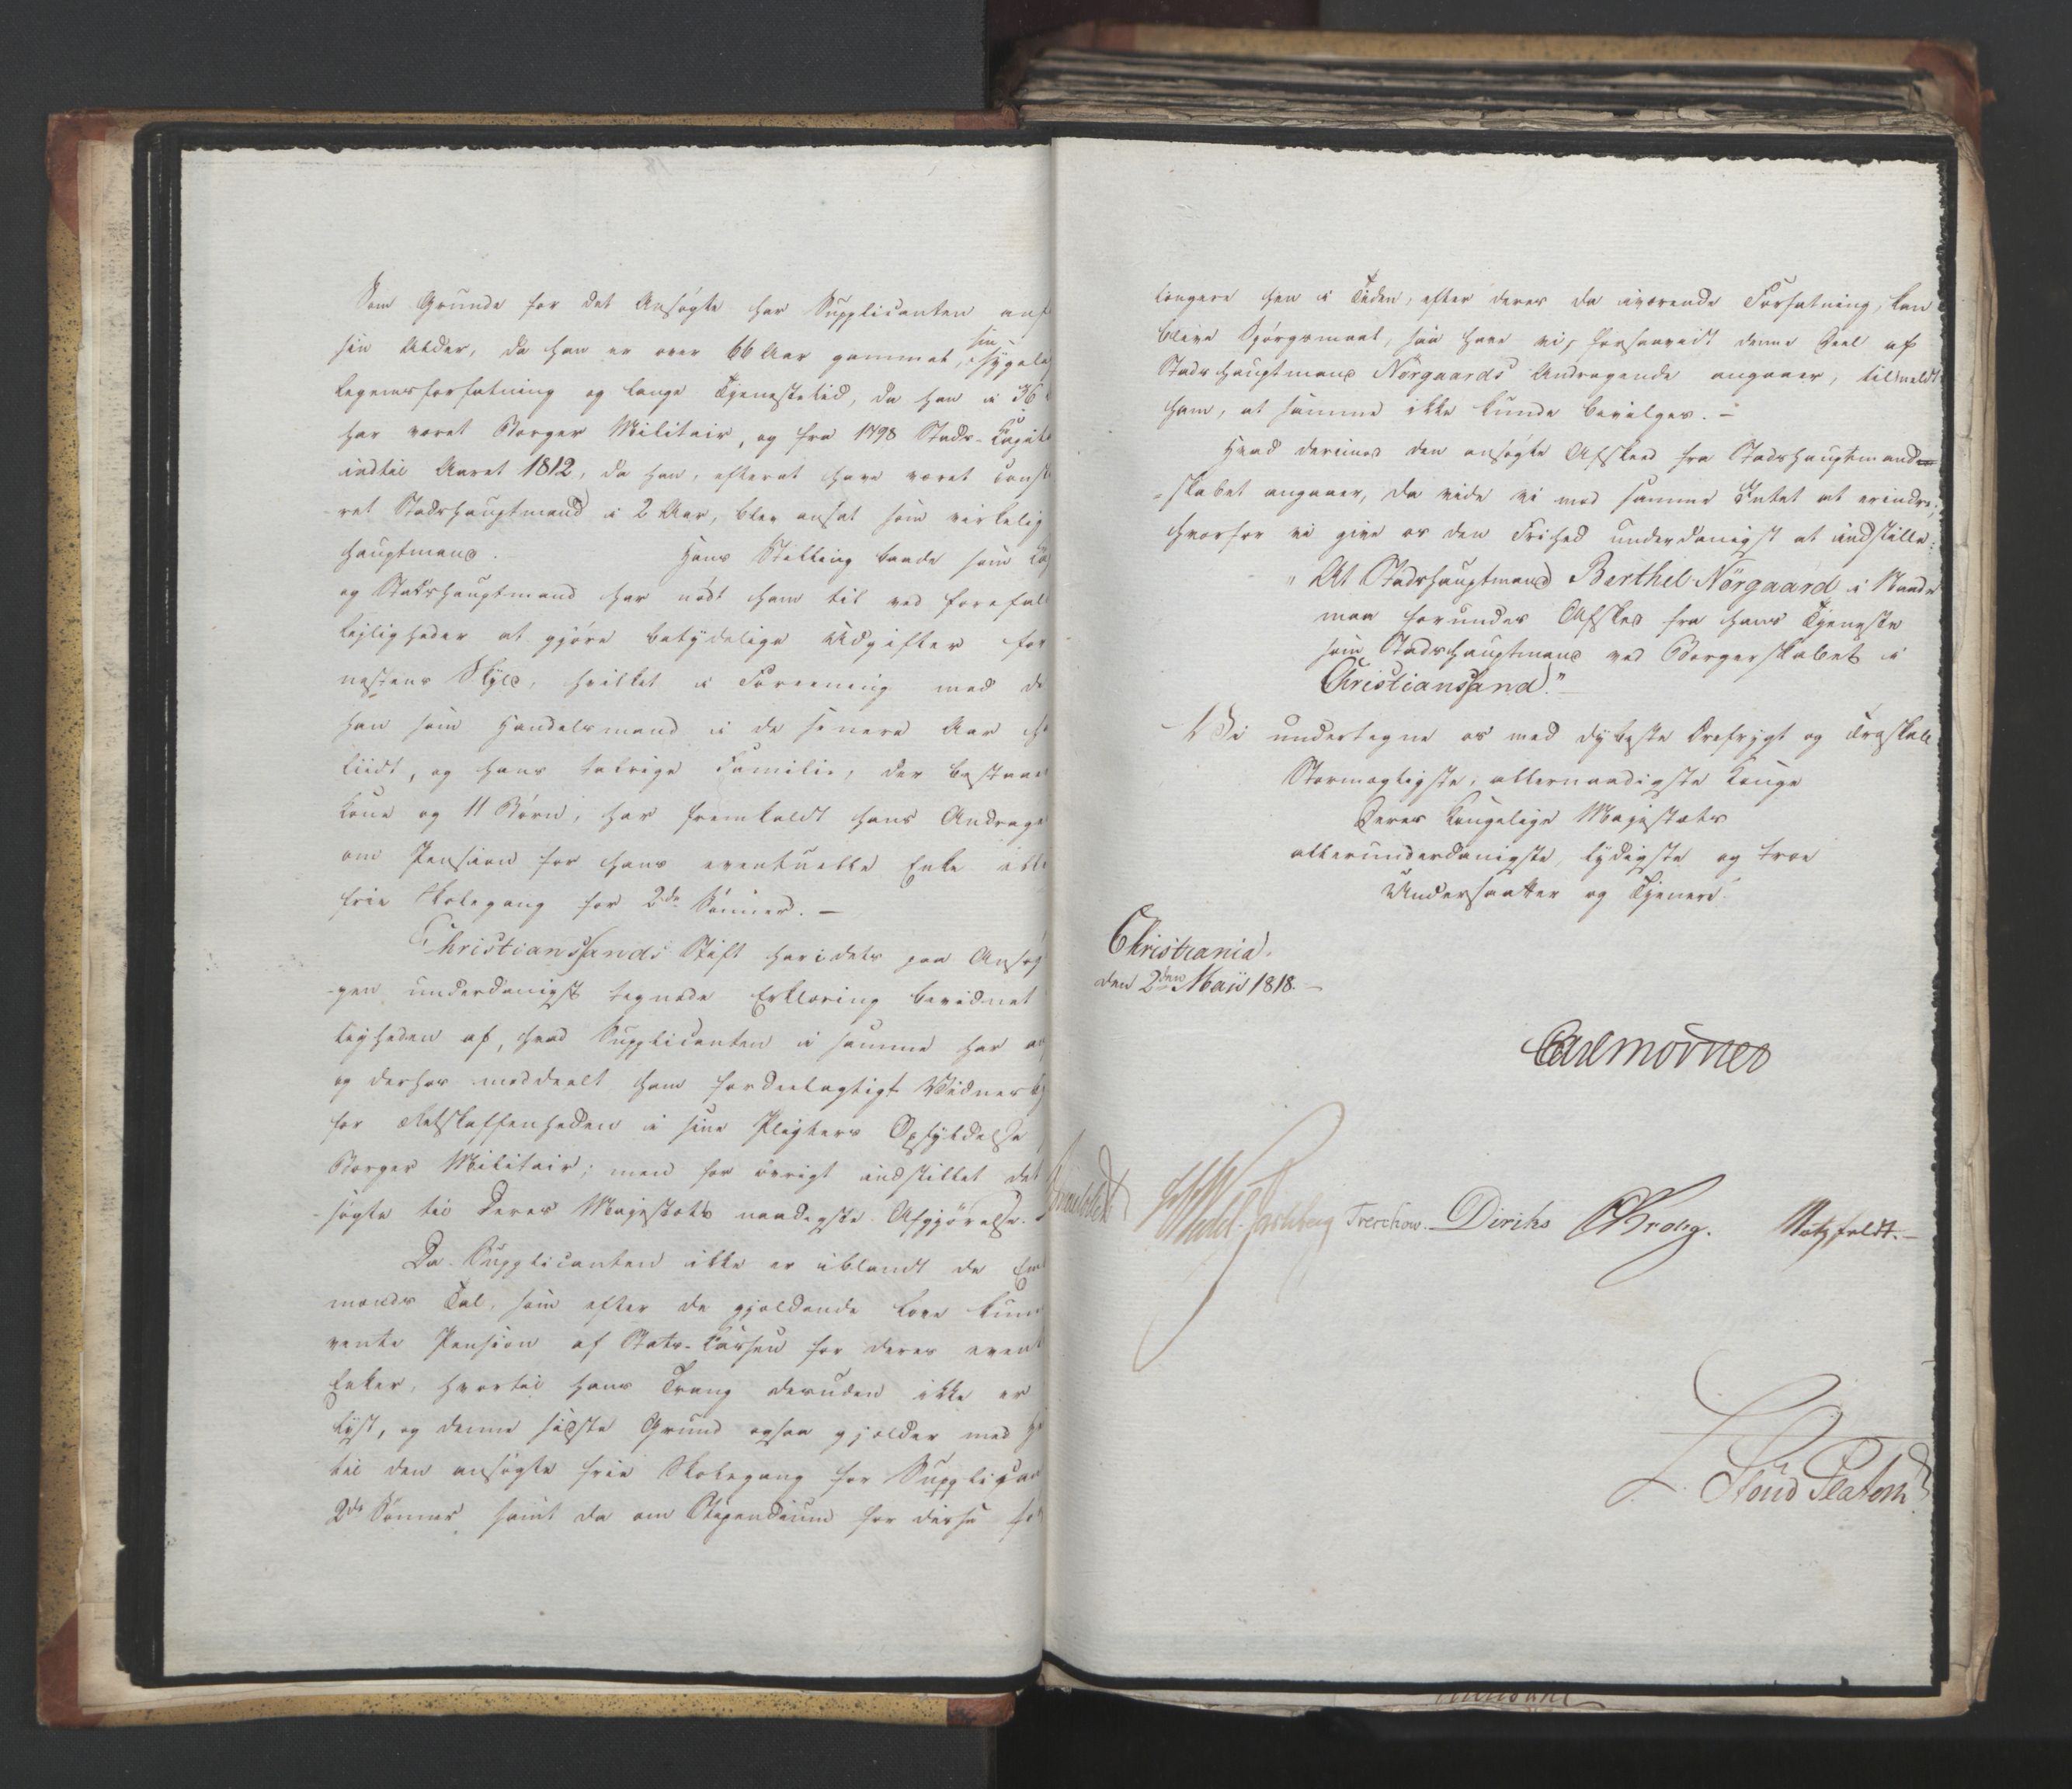 Som Grunde for det Ansøgte har Supplicanten anf
sin Alder, da han er over 66 Aar gammel, sin sygel
Legemsforfatning og lange Tjenestetid, da han i 36
har været Borger Militair, og fra 1798 Stads-Capit
indtil Aaret 1812, da han, efterat have været const
ret Stadshauptmand i 2 Aar, blev ansat som virkelig
Hauptmand. Hans Stilling baade som Ca
og Stadshauptmand har nødt ham til ved forefal
Lejligheder at gjøre betydelige Udgifter for
nestens Skyld, hvilket i Foreening med de
han som Handelsmand i de senere Aar
liidt, og hans talrige Familie, der bestaaer
Kone og 11 Børn, har fremkaldt hans Andrage
om Pension for hans eventuelle Enke
frie Skolegang for 2de Sønner. —
Christianssands Stift har i dets paa Ansøg
-gen underdanigst tegnede Erklæring bevidnet
ligheden af, hvad Supplicanten i samme har an
og derhos meddeelt ham fordeelagtigt Vidnesby
for Retskaffenheden i sine Pligters Opfyldelse
Borger Militair; men for øvrigt indstillet det
-søgte til Deres Majestæts naadigste Afgjørelse.
Da Supplicanten ikke er iblandt de Em
mænds Tal, som efter de gjældende Love kun
vente Pension af Stats-Cassen for deres event
Enker, hvortil hans Trang desuden ikke er
lyst, og denne sidste Grund ogsaa gjælder med H
til den ansøgte frie Skolegang for Supplican
2de Sønner, samt da om Stipendium for disse
længere hen i Tiden, efter deres da iværende Forfatning, kan
blive Spørgsmaal, saa have vi, forsaavidt denne Deel af
Stadshauptmand Nørgaards Andragende angaaer, tilmeldt
ham, at samme ikke kunde bevilges. —
Hvad derimod den ansøgte Afsked fra Stadshauptmand
-skabet angaaer, da vide vi mod samme Intet at erindre;
hvorfor vi give os den Frihed underdanigst at indstille:
"At Stadshauptmand Berthel Nørgaard i Naade
maa forundes Afsked fra hans Tjeneste
som Stadshauptmand ved Borgerskabet i
Christianssand."
Vi undertegne os med dybeste Ærefrygt og Troskab
Stormægtigste, allernaadigste Konge
Deres Kongelige Majestæts
allerunderdanigste, lydigste og troe
Undersaatter og Tjenere.
Christiania.
den 2den Maii 1818. —
Carl Mörner
Wedel-Jarlsberg Treschow. Diriks CKrohg. Motzfeldt. —
L. Stoud Platou